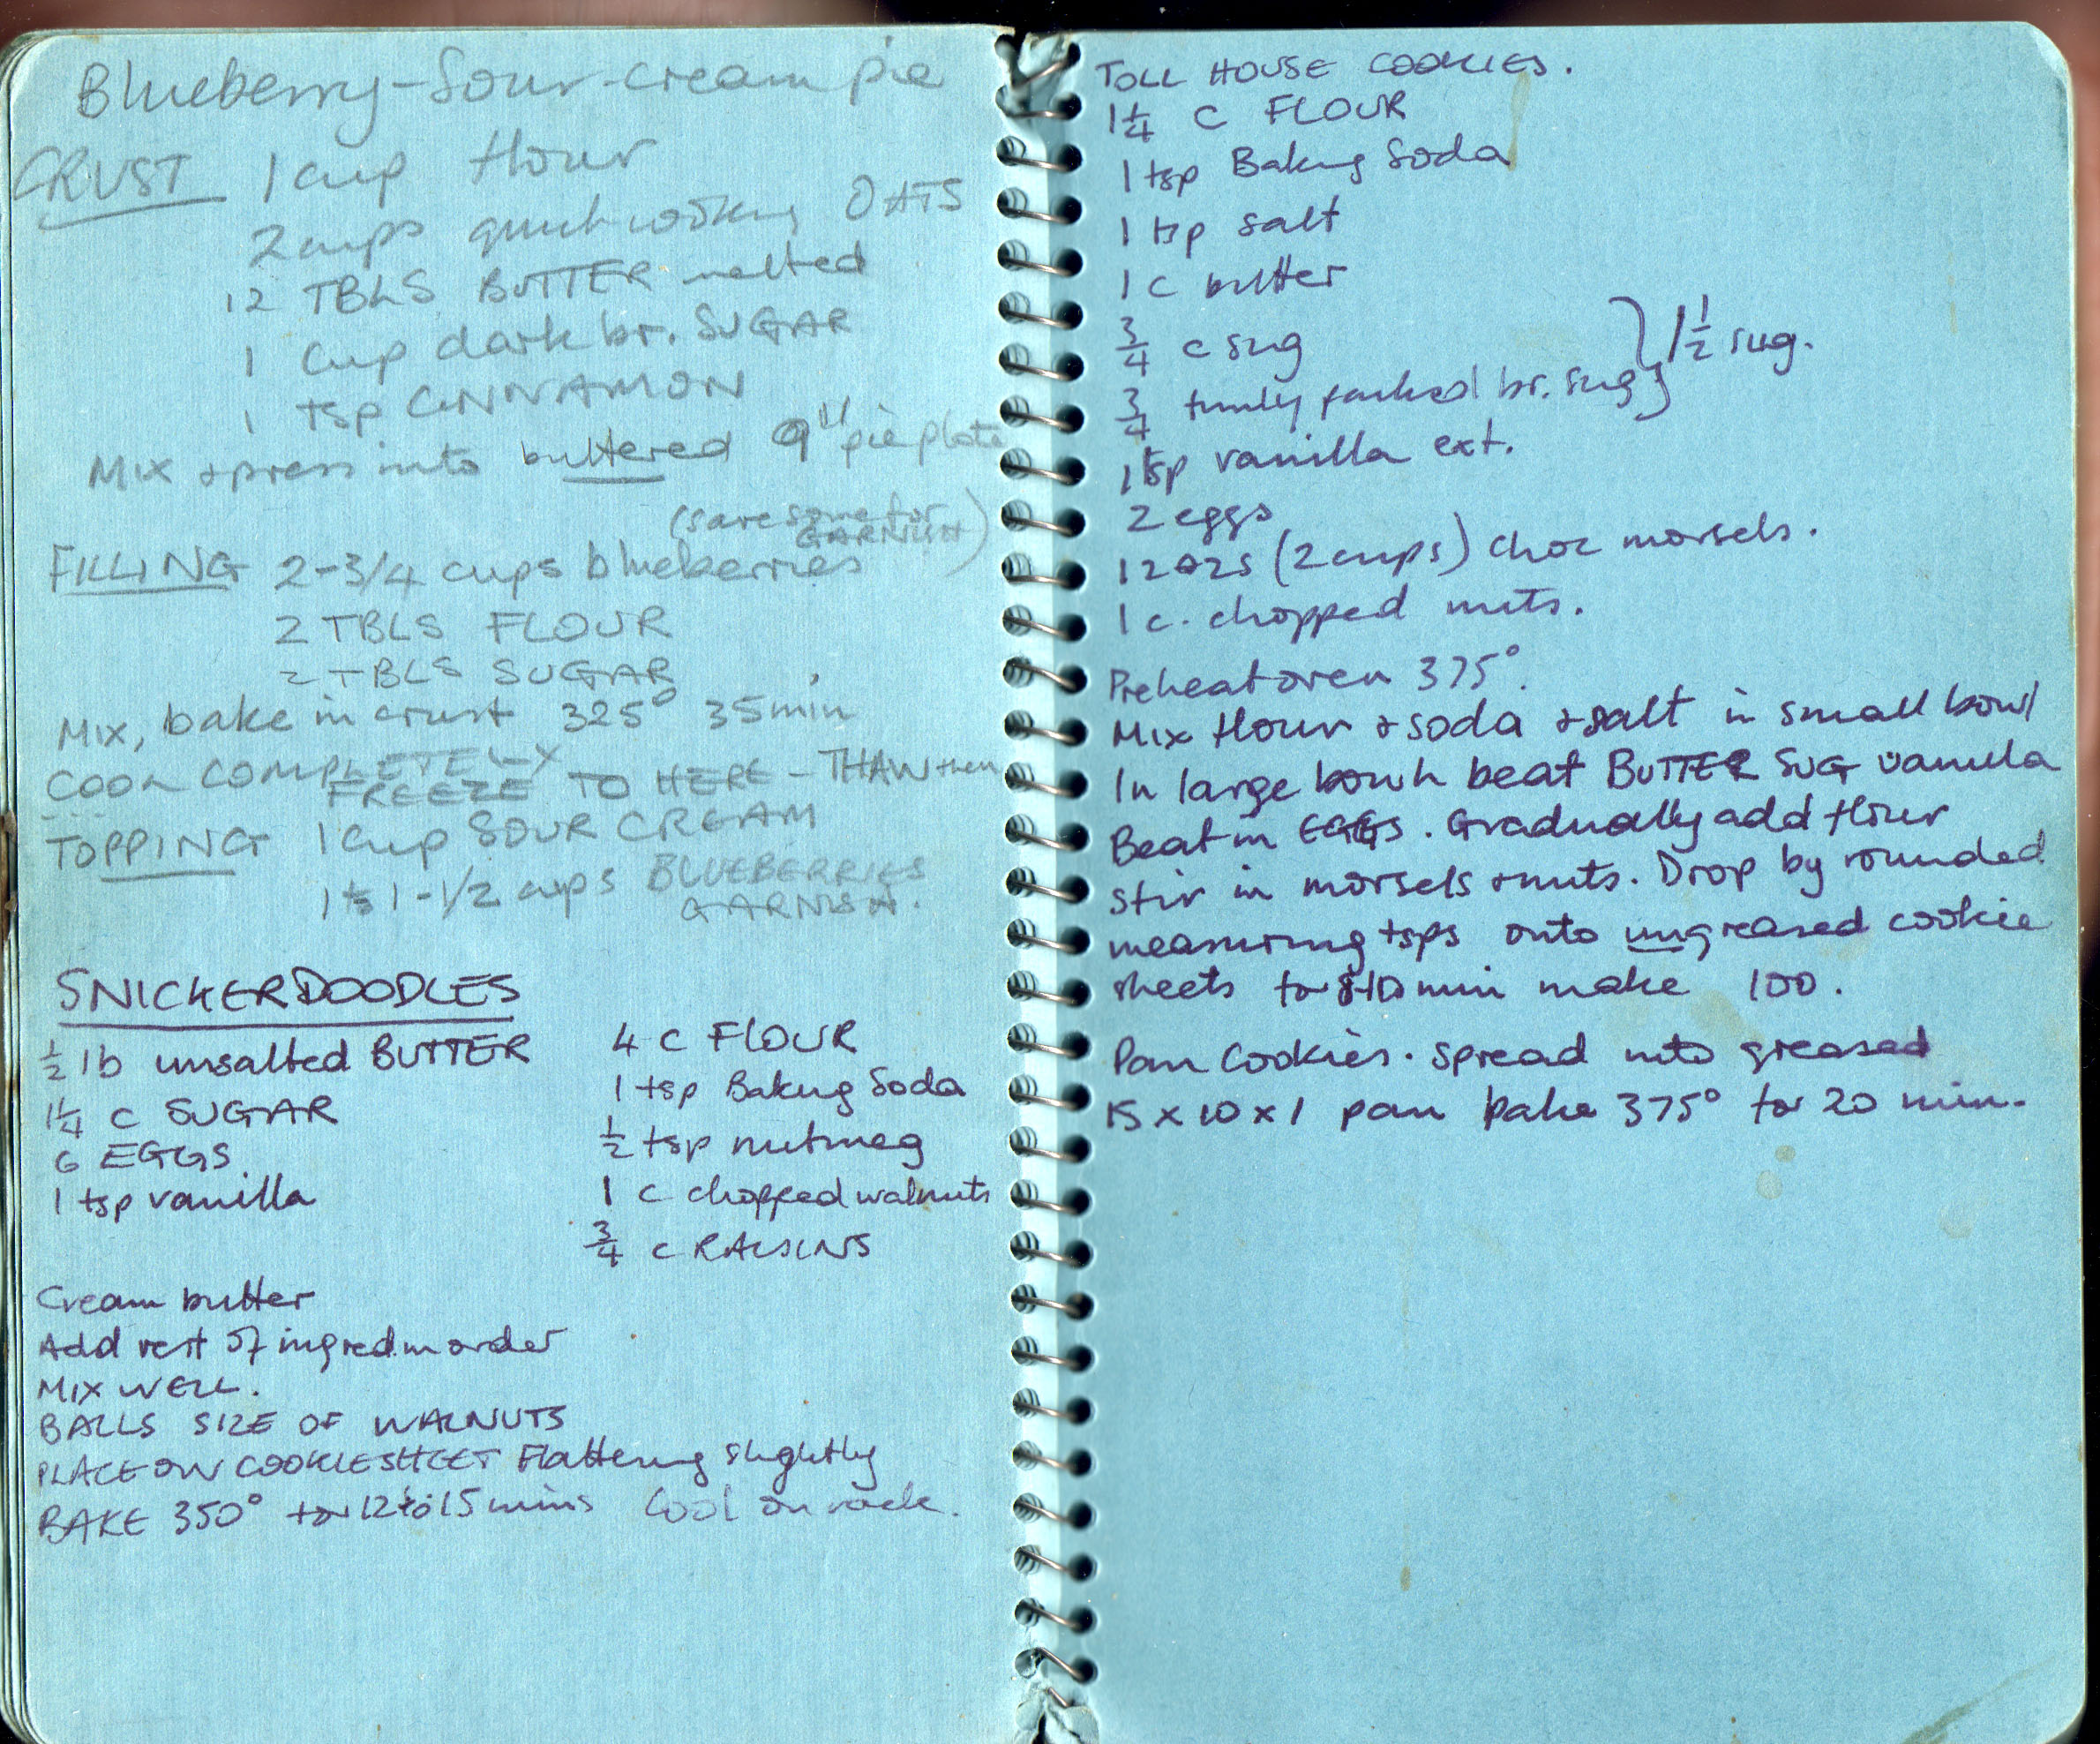 Blueberry-Sour-cream pie
CRUST 1 cup flour
2 cups quick cooking OATS
12 TBLS BUTTER melted
1 cup dark br. SUGAR
1 tsp CINNAMON
MIX + press into buttered 9" pie plate
(save some for
GARNISH)
FILLING 2-3/4 cups blueberries
2 TBLS FLOUR
2 TBLS SUGAR
MIX, bake in crust 325° 35 min
COOL COMPLETELY
FREEZE TO HERE - THAW then
TOPPING 1 cup SOUR CREAM
1 to 1-1/2 cups BLUEBERRIES
GARNISH.
SNICKERDOODLES
1/2 lb unsalted BUTTER
1 1/4 c SUGAR
6 EGGS
1 tsp vanilla
4 c FLOUR
1 tsp Baking Soda
1/2 tsp nutmeg
1 c chopped walnuts
3/4 c RAISINS
Cream butter
Add rest of ingred. in order
MIX WELL.
BALLS SIZE OF WALNUTS
PLACE ON COOKIE SHEET Flattening slightly
BAKE 350° for 12 to 15 mins Cool on rack.
TOLL HOUSE COOKIES.
1 1/4 C FLOUR
1 tsp Baking Soda
1 tsp salt
1 c butter
3/4 c sug
3/4 firmly packed br. sug } 1 1/2 sug.
1 tsp vanilla ext.
2 eggs
12 ozs (2 cups) choc morsels.
1 c. chopped nuts.
Preheat oven 375°.
MIX flour + soda + salt in small bowl
In large bowl beat BUTTER SUG vanilla
Beat in EGGS. Gradually add flour
stir in morsels + nuts. Drop by rounded
measuring tsps onto ungreased cookie
sheets for 8-10 min make 100.
Pan Cookies. Spread into greased
15 x 10 x 1 pan bake 375° for 20 min.